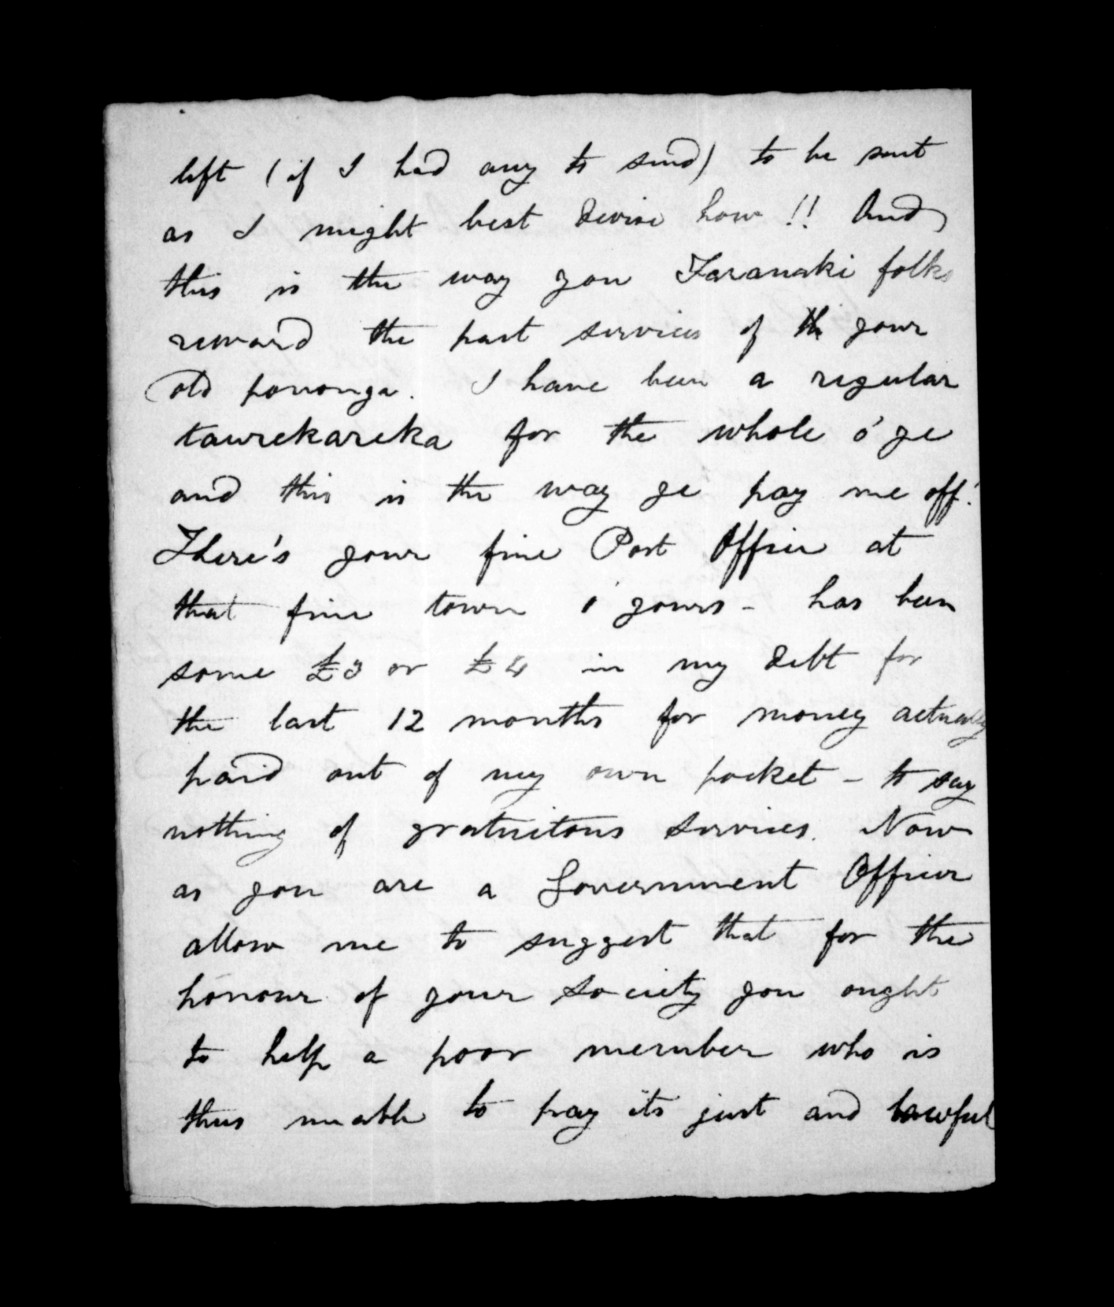 left (if I had any to send) to be sent
as I might best devise how!! And
this is the way you Taranaki folks
reward the past services of your
old pononga. I have been a regular
taurekareka for the whole o' ye
and this is the way ye pay me off!
There's your fine Post Office at
that fine town o' yours - has been
some £3 or £4 in my debt for
the last 12 months for money actually
paid out of my own pocket - to say
nothing of gratuitous services. Now
as you are a Government Officer
allow me to suggest that for the
honour of your society you ought
to help a poor member who is
thus unable to pay its just and lawful